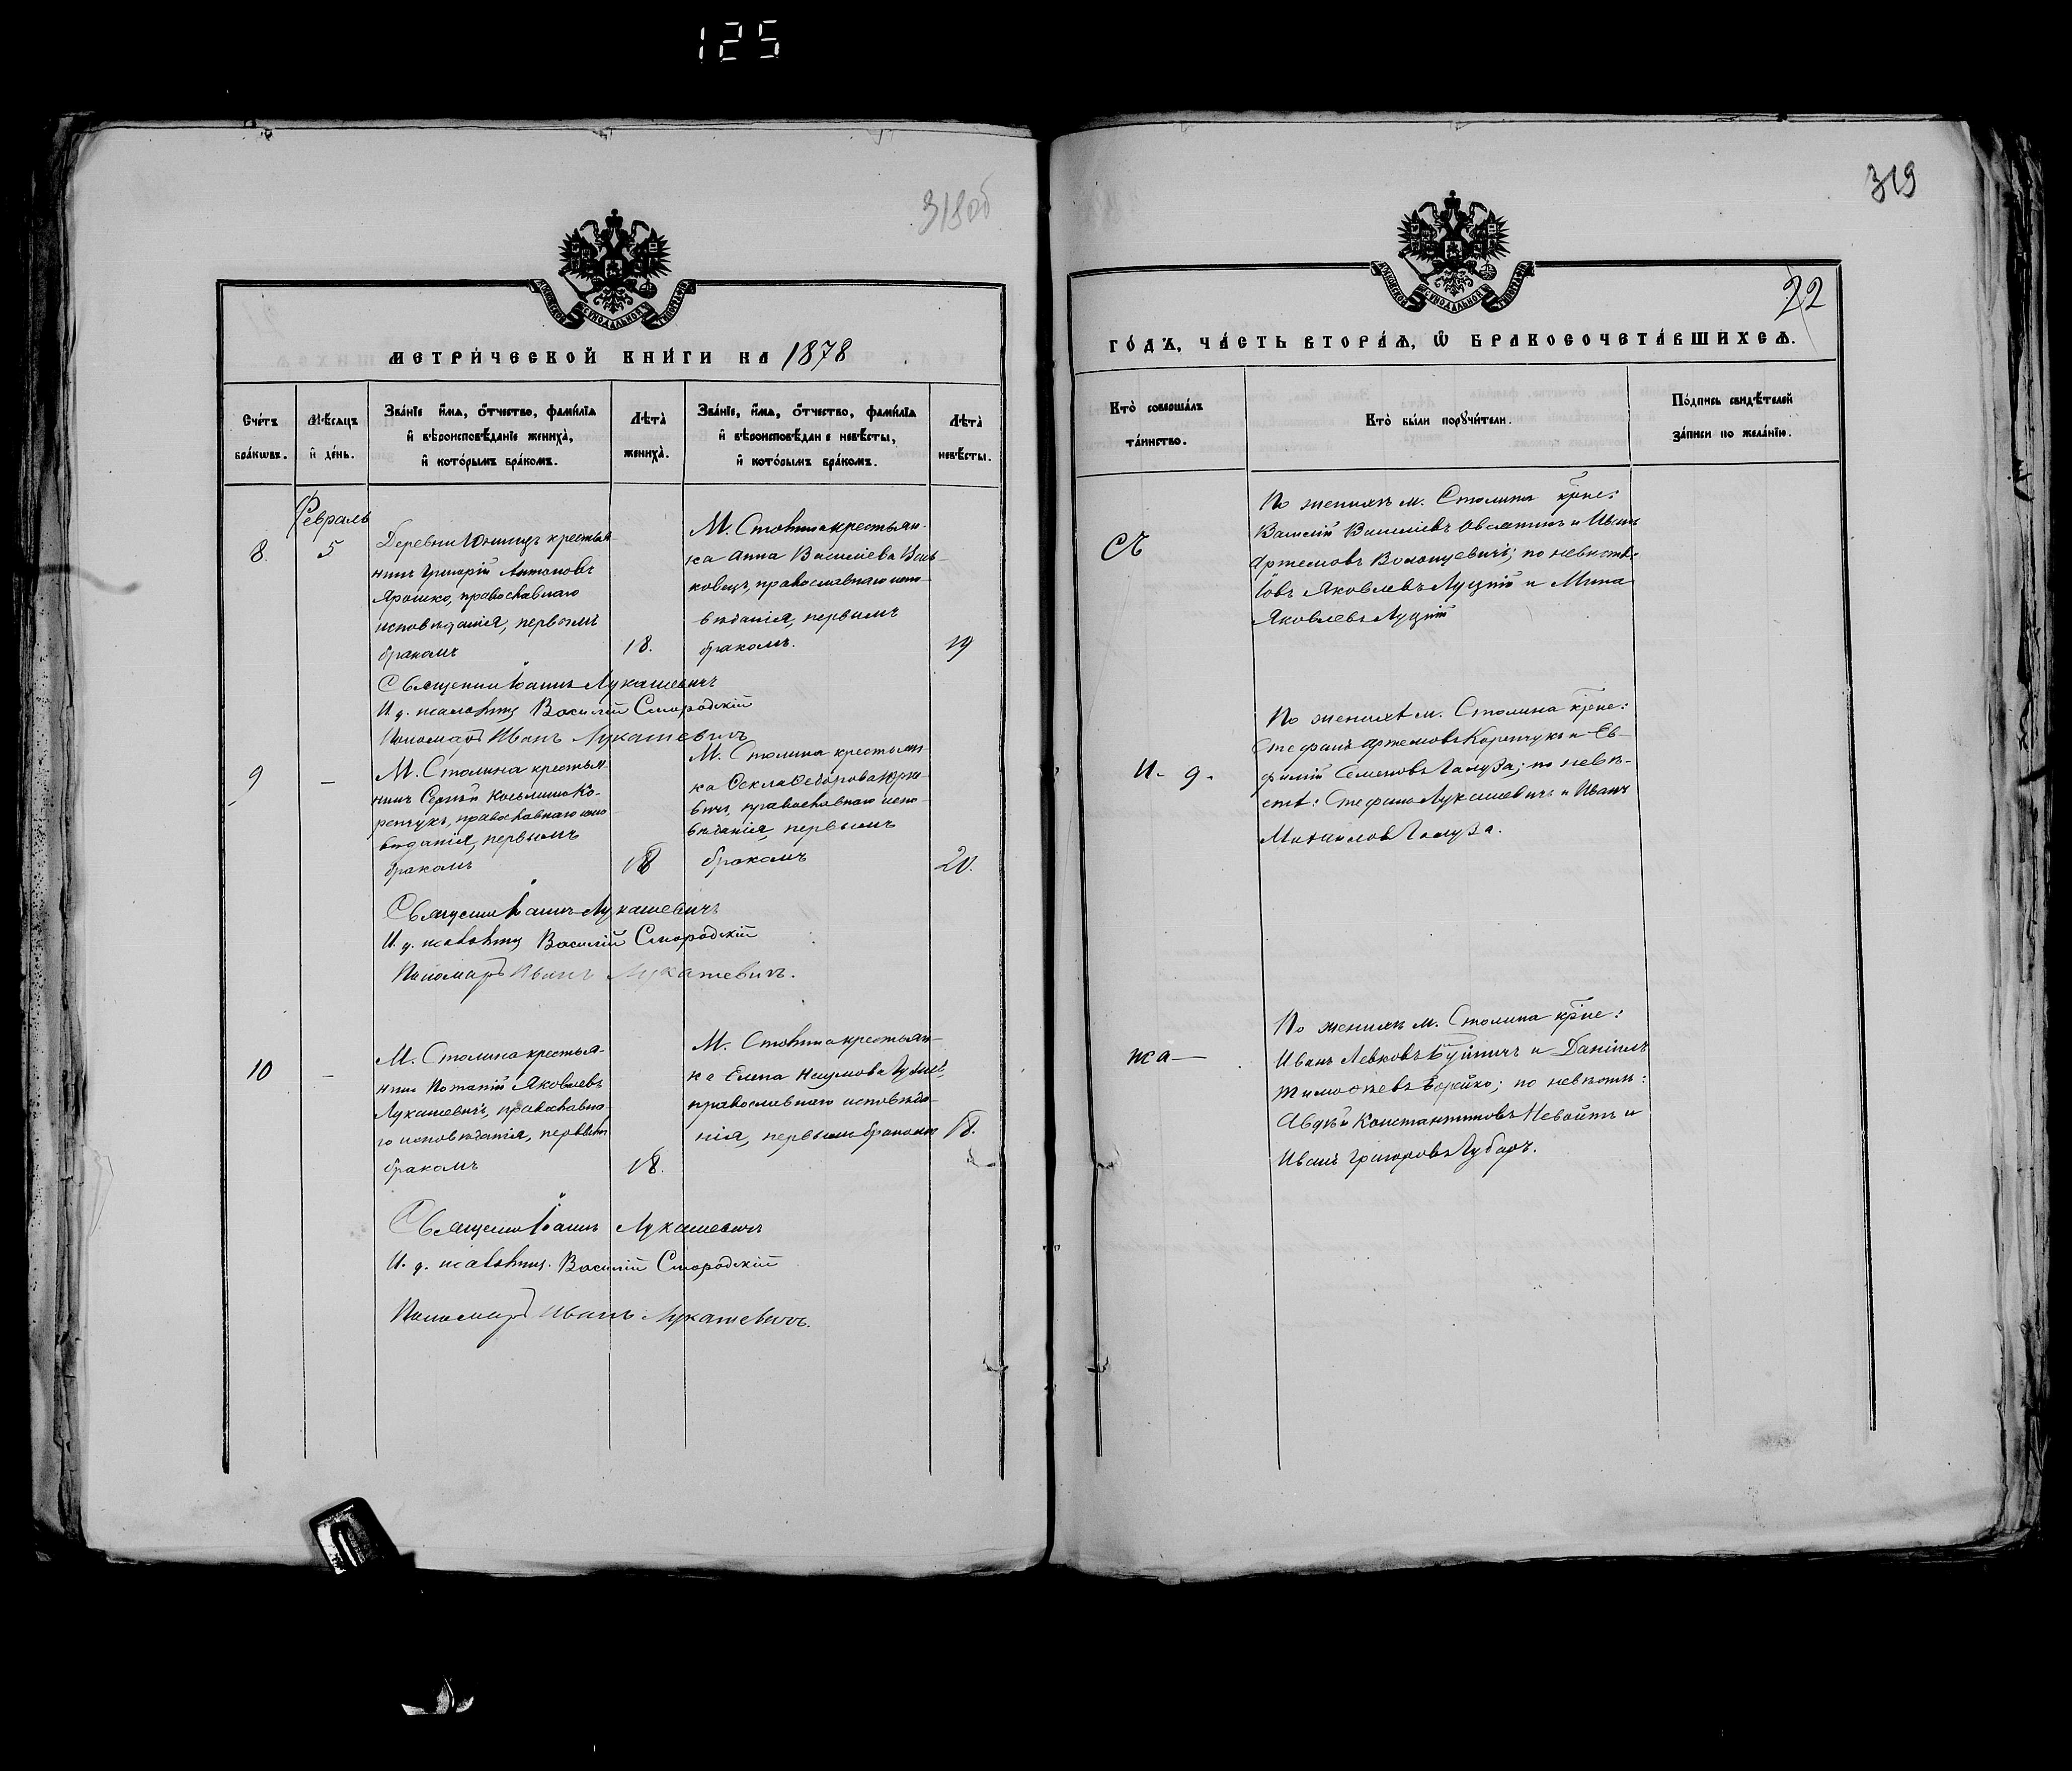 125
319об
МЕТРИ́ЧЕСКОЙ КНИ́ГИ НА 1878
Сче́тъ бра́кѡвъ.
Мѣ́сяцъ и҆ де́нь.
Зва́нїе и҆́мѧ, ѻ҆́тчество, фами́лїѧ и҆ вѣроисповѣ́данїе жениха̀, и҆ кото́рымъ бра́комъ.
Лѣта̀ жениха̀.
Зва́нїе, и҆́мѧ, ѻ҆́тчество, фами́лїѧ и҆ вѣроисповѣ́дан е невѣ́сты, и҆ кото́рымъ бра́комъ.
Лѣта̀ невѣ́сты.
Февраль
8.
5
Деревни крестья-
нинъ Григорій Антоновъ
Ярошко, православнаго
исповѣданія, первымъ
бракомъ
18.
М. Столина крестьян-
ка Анна Василіева
православнаго испо-
вѣданія, первымъ
бракомъ.
19
Священ. Іоаннъ Лукашевичъ
И. д. псаломщ. Василій Смородскій
Пономарь Иванъ Лукашевичъ
9
—
М. Столина крестья-
нинъ Сергѣй Косьминъ Ко-
ренчукъ, православнаго испо-
вѣданія, первымъ
бракомъ
18
М. Столина крестьян-
ка Ѳекла Ѳедорова
православнаго испо-
вѣданія, первымъ
бракомъ
20.
Священ. Іоаннъ Лукашевичъ
И. д. псаломщ. Василій Смородскій
Пономарь Иванъ Лукашевичъ.
10
—
М. Столина крестья-
нинъ Потапій Яковлевъ
Лукашевичъ, православна-
го исповѣданія, первымъ
бракомъ
18.
М. Столина крестьян-
ка Елена Наумова
православнаго исповѣда-
нія, первымъ бракомъ
18.
Священ. Іоаннъ Лукашевичъ
И. д. псаломщ. Василій Смородскій
Пономарь Иванъ Лукашевичъ.
319
22
ГО́ДЪ, ЧА́СТЬ ВТОРА́Ѧ, Ѽ БРАКОСОЧЕТА́ВШИХСѦ.
Кто̀ соверша́лъ та́инство.
Кто̀ бы́ли порꙋчи́тели.
По́дпись свидѣ́телей за́писи по жела́нїю.
Съ
По женихѣ м. Столина крне:
Василій Василіевъ и Иванъ
Артемовъ по невѣстѣ:
Іовъ Яковлевъ Луцкій и Мина
Яковлевъ Луцкій
И. д.
По женихѣ м. Столина крне:
Стефанъ Артемовъ Коренчукъ и Ев-
фимій Семеновъ Галуза; по невѣ-
стѣ: Стефанъ Лукашевичъ и Иванъ
Михаиловъ Галуза.
жа—
По женихѣ м. Столина крне:
Иванъ Левковъ и Даніилъ
Тимоѳеевъ по невѣстѣ:
Авдѣй Константиновъ Невойтъ и
Иванъ Григоровъ